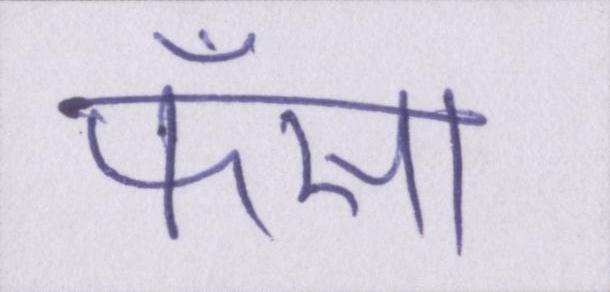 फँसा